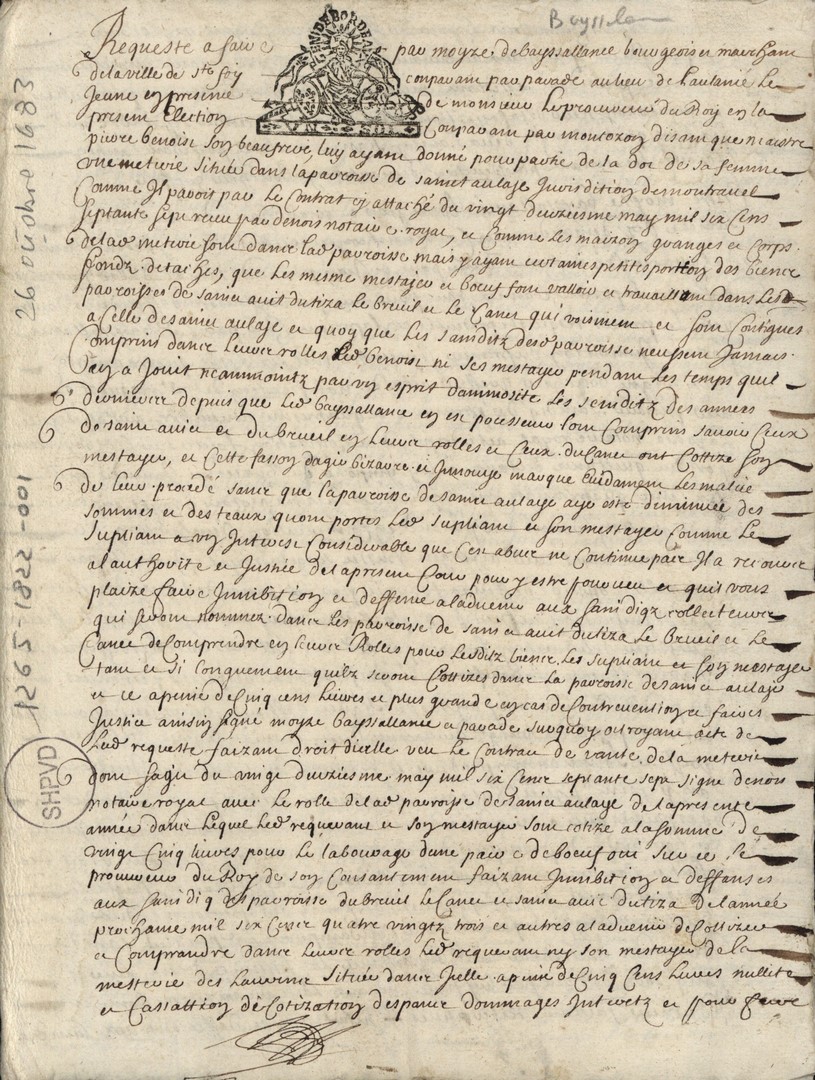 Bayssela
GEN DE BORDEAUX
UN SOL
Requeste a faire par moyze de bayssallance bourgeois et marchant
de la ville de Ste foy conparant par parade au lieu de lautanie le
Jeune en presence de monsieur le procureur du Roy en la
present Election Conparant par montozon disant que ni autre
pierre benoist son beaufrere luy ayant donné pour partie de la doc de sa femme
une meterie située dans la paroisse de sainct aulaye Jurisdition de montravel
Comme Il paroit par le Contrat cy attaché du vingt deuxiesme may mil six cens
septante sept receu par denois notaire royal, et Comme les maizon granges et Corps
de lad meterie sont dans lad parroisse mais y ayant certaines petites portion des biens
fondz detachés, que les mesme mestayer et boeuf font valloir et travaillent dans lesd
parroisses de sainct avit du tiza le breuil et le Canet qui voisinent et sont Contigues
a Celle de sainct aulaye et quoy que les sainditz desd parroisse neussent Jamais
Comprins dans leurs rolles led benoist ni ses mestayer pendant les temps quil
en a Jouit neanmointz par un esprit danimosité les sinditz des annees
dernieres depuis que led bayssallance en est pocesseur lont Comprins savoir Ceux
de sainct avit et du breuil en leurs rolles et Ceux du Canet ont Cottize son
mestayer, et Cette fasson dagir bizarre et Innouye marque Evidament les malice
de leur procedé sans que la parroisse de sainct aulaye aye esté diminuée des
sommes et des teaux quont portes led supliant et son mestayer Comme le
supliant a un Interest Considerable que Cest abus ne Continue pais Il a recours
a lauthorité et Justice de la present Cour pour y estre pourveu et quil vous
plaize faire Innibition et deffence a ladvenir aux saindiqz collecteurs
qui seront nommez dans les parroisse de sainct avit du tiza le breuil et le
Canet de Comprendre en leurs Rolles pour lesditz biens les supliant et son mestayer
tant et si longuement quilz seront Cottizes dans la parroisse de sainct aulaye
et ce a peine de Cinq cens livres et plus grande en cas de Contrevention et faires
Justice ainsin signe moyze bayssallance et parade sur quoy octroyant acte de
lad requeste faizant droit dicelle veu le Contrat de vante de la meterie
dont sagit du vingt deuxiesme may mil six Cens septante sept signe denois
notaire royal avec le rolle de lad parroisse de sainct aulaye de la presente
année dans lequel led requerant et son mestayer sont cotize a la somme de
vingt Cinq livres pour le labourage dune paire de boeuf oui sur ce le
procureur du Roy de son Consantement faizant Innibition et deffanses
aux saindiq des parroisse du breuil le Canet et sainct avit du tiza de lannée
prochaine mil six Cens quatre vingtz trois et autres a ladvenir de Cottizer
et Comprandre dans leurs rolles led requerant ny son mestayer de la
mesterie des Laurens située dans Jcelle a peine de Cinq Cens livres nullité
et Cassattion de Cotization despans dommages Interetz et pour faire
26 octobre 1683
1265-1822-001
SHPVD